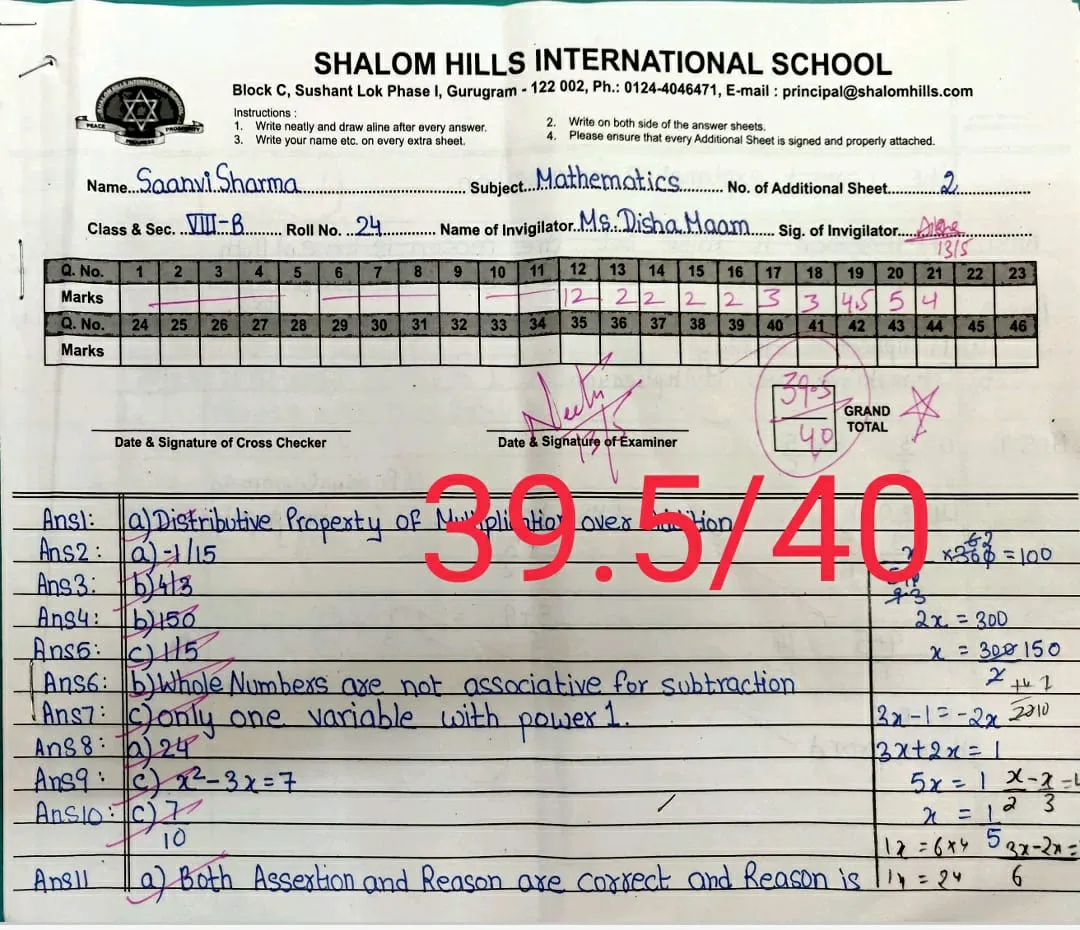 SHALOM HILLS INTERNATIONAL SCHOOL
Block C, Sushant Lok Phase I, Gurugram - 122 002, Ph.: 0124-4046471, E-mail : principal@shalomhills.com
SHALOM HILLS INTERNATIONAL
PEACE PROSPERITY
PROGRESS
Instructions :
1. Write neatly and draw aline after every answer. 2. Write on both side of the answer sheets.
3. Write your name etc. on every extra sheet. 4. Please ensure that every Additional Sheet is signed and properly attached.
Name... Saanvi Sharma Subject... Mathematics No. of Additional Sheet... 2
Class & Sec. ... VIII-B Roll No. ... 24 Name of Invigilator... Ms. Disha Maam Sig. of Invigilator...
13/5
Q. No. 1 2 3 4 5 6 7 8 9 10 11 12 13 14 15 16 17 18 19 20 21 22 23
Marks 12 2 2 2 2 3 3 4.5 5 4
Q. No. 24 25 26 27 28 29 30 31 32 33 34 35 36 37 38 39 40 41 42 43 44 45 46
Marks
39.5
40
GRAND TOTAL
13/5
Date & Signature of Cross Checker Date & Signature of Examiner
39.5/40
Ans1: a) Distributive Property of Multiplication over Addition
Ans2: a) -1/15
Ans3: b) 4/3
Ans4: b) 150
Ans5: c) 1/5
Ans6: b) Whole Numbers are not associative for subtraction
Ans7: c) only one variable with power 1.
Ans8: a) 24
Ans9: c) x²-3x=7
Ans10: c) 7
10
Ans11 a) Both Assertion and Reason are correct and Reason is
= 100
2x = 300
x = 300 150
2
3x-1 = -2x
3x+2x = 1
5x = 1
x = 1
5
x - x
2 3
1x = 6x4
3x-2x =
6
1x = 24